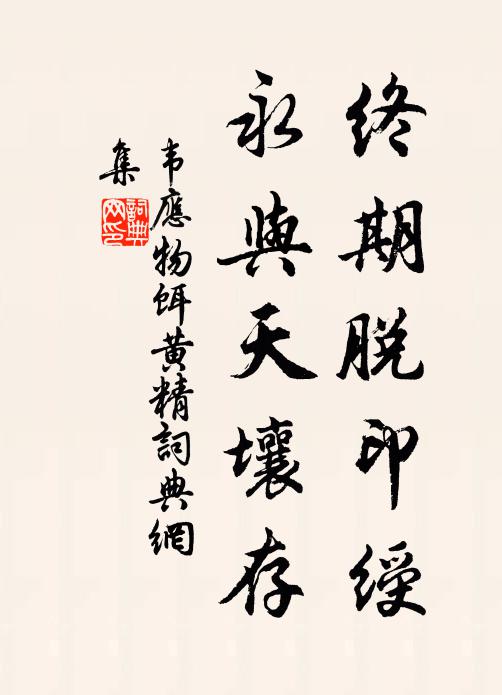 終期脱印綬
永與天壤存
韦應物餌黄精詞典網
集
詞典網印